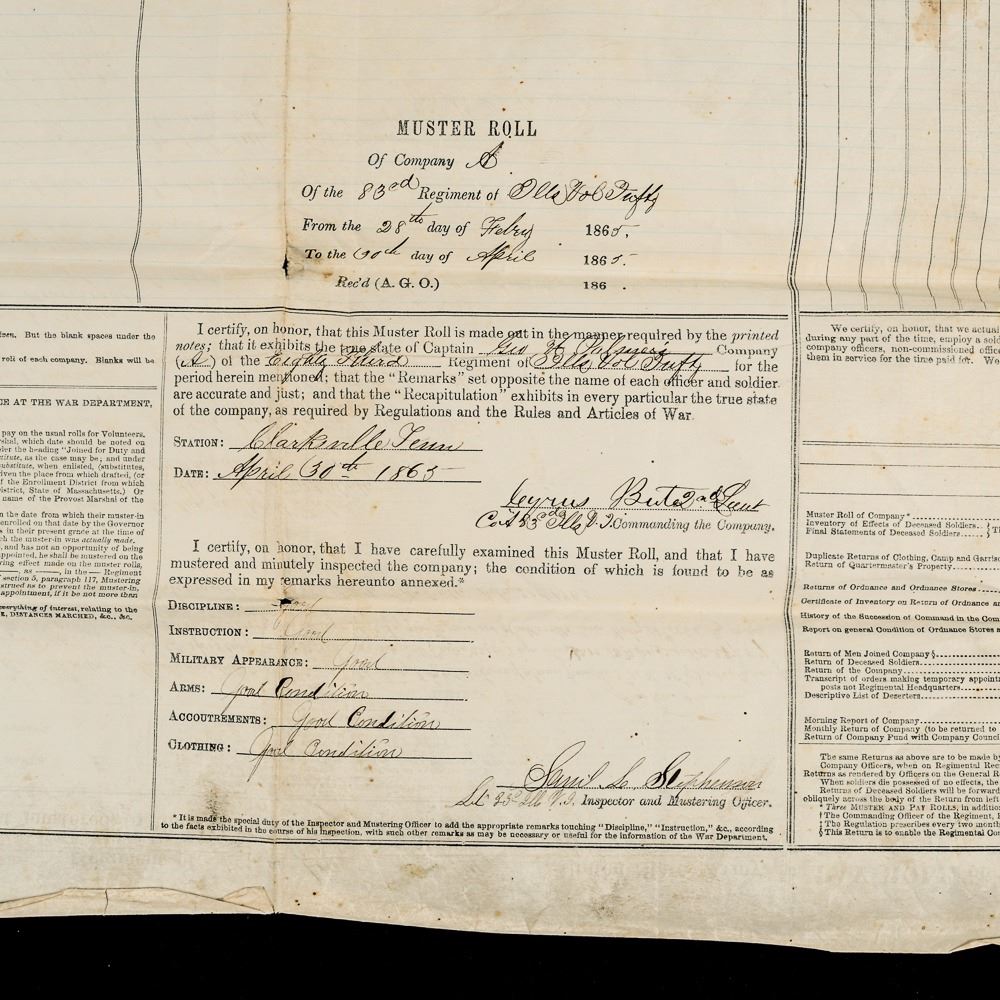 MUSTER ROLL
Of Company A
Of the 83rd Regiment of Ills Vol Infty
From the 28th day of Febry 1865.
To the 30th day of April 1865.
Rec'd (A. G. O.) 186 .
But the blank spaces under the
roll of each company. Blanks will be
CE AT THE WAR DEPARTMENT,
pay on the usual rolls for Volunteers.
which date should be noted on
the heading "Joined for Duty and
as the case may be; and under
when enlisted, (substitutes,
the place from which drafted, (or
f the Enrollment District from which
District, State of Massachusetts.) Or
name of the Provost Marshal of the
the date from which their muster-in
enrolled on that date by the Governor
in their present grade at the time of
the muster-in was actually made.
and has not an opportunity of being
appointed, he shall be mustered on the
ring effect made on the muster rolls,
— as —, in the — Regiment
section 5, paragraph 117, Mustering
strued as to prevent the muster-in,
appointment, if it be not more than
everything of interest, relating to the
DISTANCES MARCHED, &c., &c.
I certify, on honor, that this Muster Roll is made out in the manner required by the printed
notes; that it exhibits the true state of Captain Company
(A) of the Eighty Third Regiment of Ills Vol Infty for the
period herein mentioned; that the "Remarks" set opposite the name of each officer and soldier
are accurate and just; and that the "Recapitulation" exhibits in every particular the true state
of the company, as required by Regulations and the Rules and Articles of War.
STATION: Clarksville Tenn
DATE: April 30th 1865
Cyrus 2nd Lieut
Co A 83d Ills V. I. Commanding the Company.
I certify, on honor, that I have carefully examined this Muster Roll, and that I have
mustered and minutely inspected the company; the condition of which is found to be as
expressed in my remarks hereunto annexed.*
DISCIPLINE: Good
INSTRUCTION: Good
MILITARY APPEARANCE: Good
ARMS: Good Condition
ACCOUTREMENTS: Good Condition
CLOTHING: Good Condition
Saml L Stephenson
Lt 83d Ills V. I. Inspector and Mustering Officer.
* It is made the special duty of the Inspector and Mustering Officer to add the appropriate remarks touching "Discipline," "Instruction," &c., according
to the facts exhibited in the course of his inspection, with such other remarks as may be necessary or useful for the information of the War Department.
We certify, on honor, that we actual
during any part of the time, employ a sold
company officers, non-commissioned office
them in service for the time paid for. We
Muster Roll of Company*
Inventory of Effects of Deceased Soldiers
Final Statements of Deceased Soldiers
Duplicate Returns of Clothing, Camp and Garriso
Return of Quartermaster's Property
Returns of Ordnance and Ordnance Stores
Certificate of Inventory on Return of Ordnance an
History of the Succession of Command in the Com
Report on general Condition of Ordnance Stores a
Return of Men Joined Company§
Return of Deceased Soldiers
Return of the Company
Transcript of orders making temporary appoint
posts not Regimental Headquarters
Descriptive List of Deserters
Morning Report of Company
Monthly Return of Company (to be returned to
Return of Company Fund with Company Counci
The same Returns as above are to be made by
Company Officers, when on Regimental Rec
Returns as rendered by Officers on the General R
When soldiers die possessed of no effects, the
Returns of Deceased Soldiers will be forward
obliquely across the body of the Return from left
* Three MUSTER AND PAY ROLLS, in addition
† The Commanding Officer of the Regiment, P
‡ The Regulation prescribes every two month
§ This Return is to enable the Regimental Co